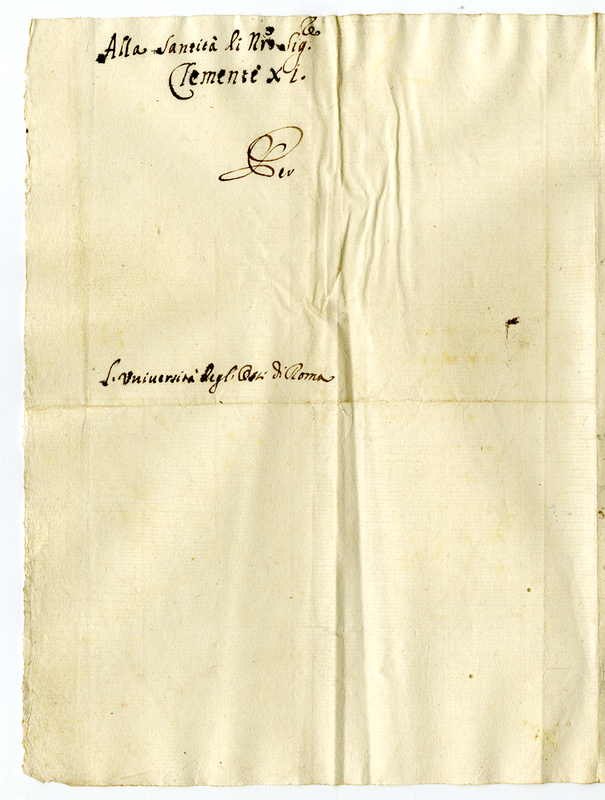 Alla Santità di Nro Sigre
Clemente XI.
Per
L'Università degl' Osti di Roma